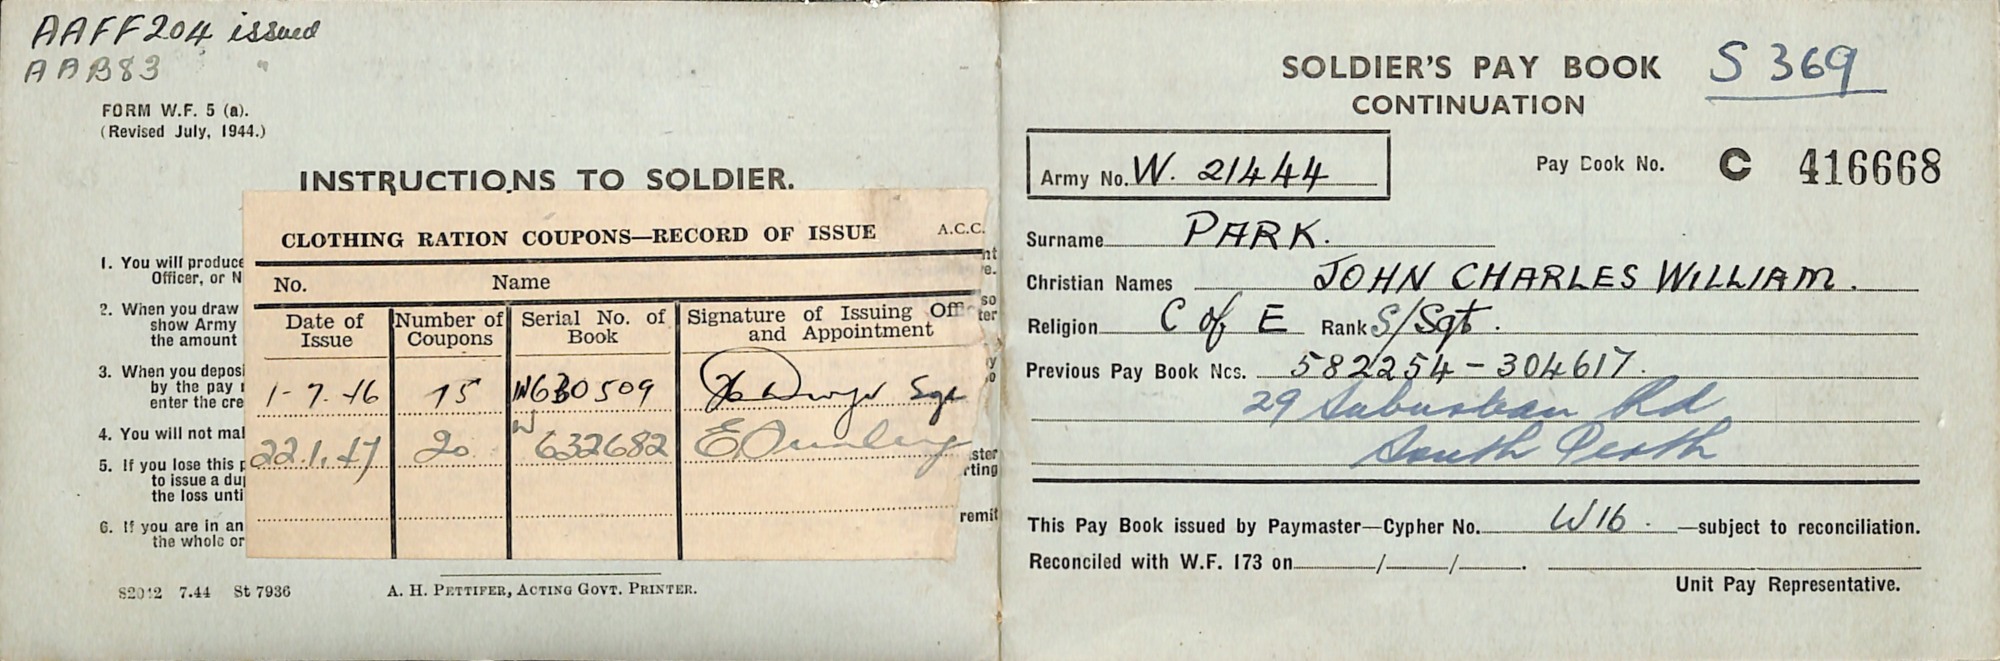 AAFF204 issued
AAB83
FORM W.F. 5 (a).
(Revised July, 1944.)
INSTRUCTIONS TO SOLDIER.
CLOTHING RATION COUPONS—RECORD OF ISSUE A.C.C.
No. Name
Date of Issue Number of Coupons Serial No. of Book Signature of Issuing and Appointment
1-7-46 15 W630509 Sgt
22.1.47 20 W 632682
1. You will produce
Officer, or N
2. When you draw
show Army
the amount
3. When you deposi
by the pay
enter the cre
4. You will not mal
5. If you lose this p
to issue a du
the loss unti
6. If you are in an
the whole or
nt
e.
so
ter
y
o
ster
rting
remit
S2042 7.44 St 7936 A. H. PETTIFER, ACTING GOVT. PRINTER.
SOLDIER'S PAY BOOK S 369
CONTINUATION
Army No. W. 21444 Pay Book No. C 416668
Surname PARK.
Christian Names JOHN CHARLES WILLIAM.
Religion C of E Rank S/Sgt.
Previous Pay Book Nos. 582254-304617.
29 Suburban Rd
South Perth
This Pay Book issued by Paymaster—Cypher No. W16. —subject to reconciliation.
Reconciled with W.F. 173 on / / .
Unit Pay Representative.